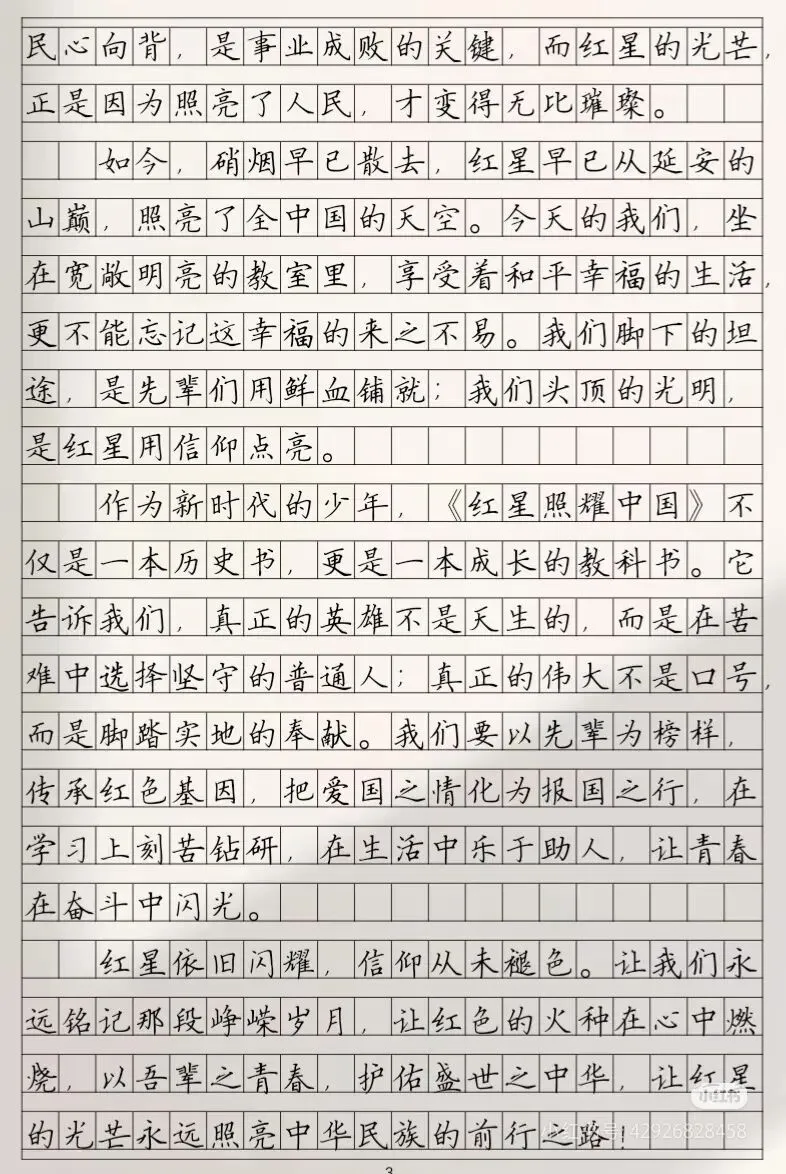 民心向背，是事业成败的关键，而红星的光芒，
正是因为照亮了人民，才变得无比璀璨。
如今，硝烟早已散去，红星早已从延安的
山巅，照亮了全中国的天空。今天的我们，坐
在宽敞明亮的教室里，享受着和平幸福的生活，
更不能忘记这幸福的来之不易。我们脚下的坦
途，是先辈们用鲜血铺就；我们头顶的光明，
是红星用信仰点亮。
作为新时代的少年，《红星照耀中国》不
仅是一本历史书，更是一本成长的教科书。它
告诉我们，真正的英雄不是天生的，而是在苦
难中选择坚守的普通人；真正的伟大不是口号，
而是脚踏实地的奉献。我们要以先辈为榜样，
传承红色基因，把爱国之情化为报国之行，在
学习上刻苦钻研，在生活中乐于助人，让青春
在奋斗中闪光。
红星依旧闪耀，信仰从未褪色。让我们永
远铭记那段峥嵘岁月，让红色的火种在心中燃
烧，以吾辈之青春，护佑盛世之中华，让红星
小红书
的光芒永远照亮中华民族的前行之路！
小红书号：42926828458
3